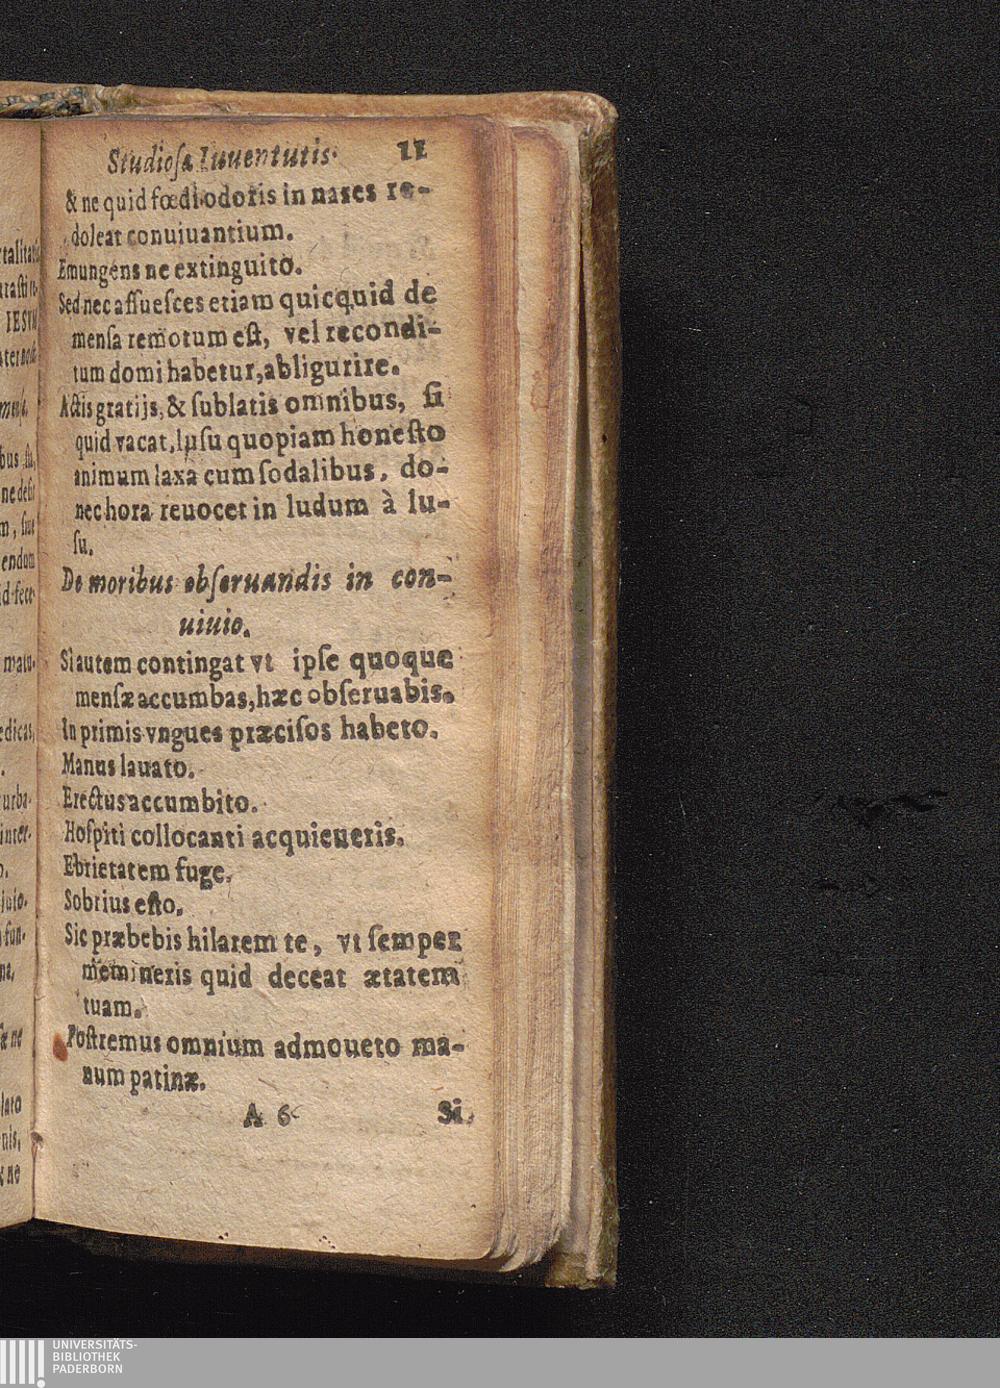 Studioſæ Iuuentutis. 11
& ne quid fœdi odoris in nares re-
doleat conuiuantium.
Emungens ne extinguito.
Sed nec aſſueſces etiam quicquid de
menſa remotum eſt, vel recondi-
tum domi habetur, abligurire.
Actis gratijs, & ſublatis omnibus, ſi
quid vacat, luſu quopiam honeſto
animum laxa cum ſodalibus, do-
nec hora reuocet in ludum à lu-
ſu.
De moribus obſeruandis in con-
uiuio.
Si autem contingat vt ipſe quoque
menſæ accumbas, hæc obſeruabis.
In primis vngues præciſos habeto.
Manus lauato.
Erectus accumbito.
Hoſpiti collocanti acquieueris.
Ebrietatem fuge.
Sobrius eſto.
Sic præbebis hilarem te, vt ſemper
memineris quid deceat ætatem
tuam.
Poſtremus omnium admoueto ma-
num patinæ.
A 6 Si
UNIVERSITÄTS-
BIBLIOTHEK
PADERBORN